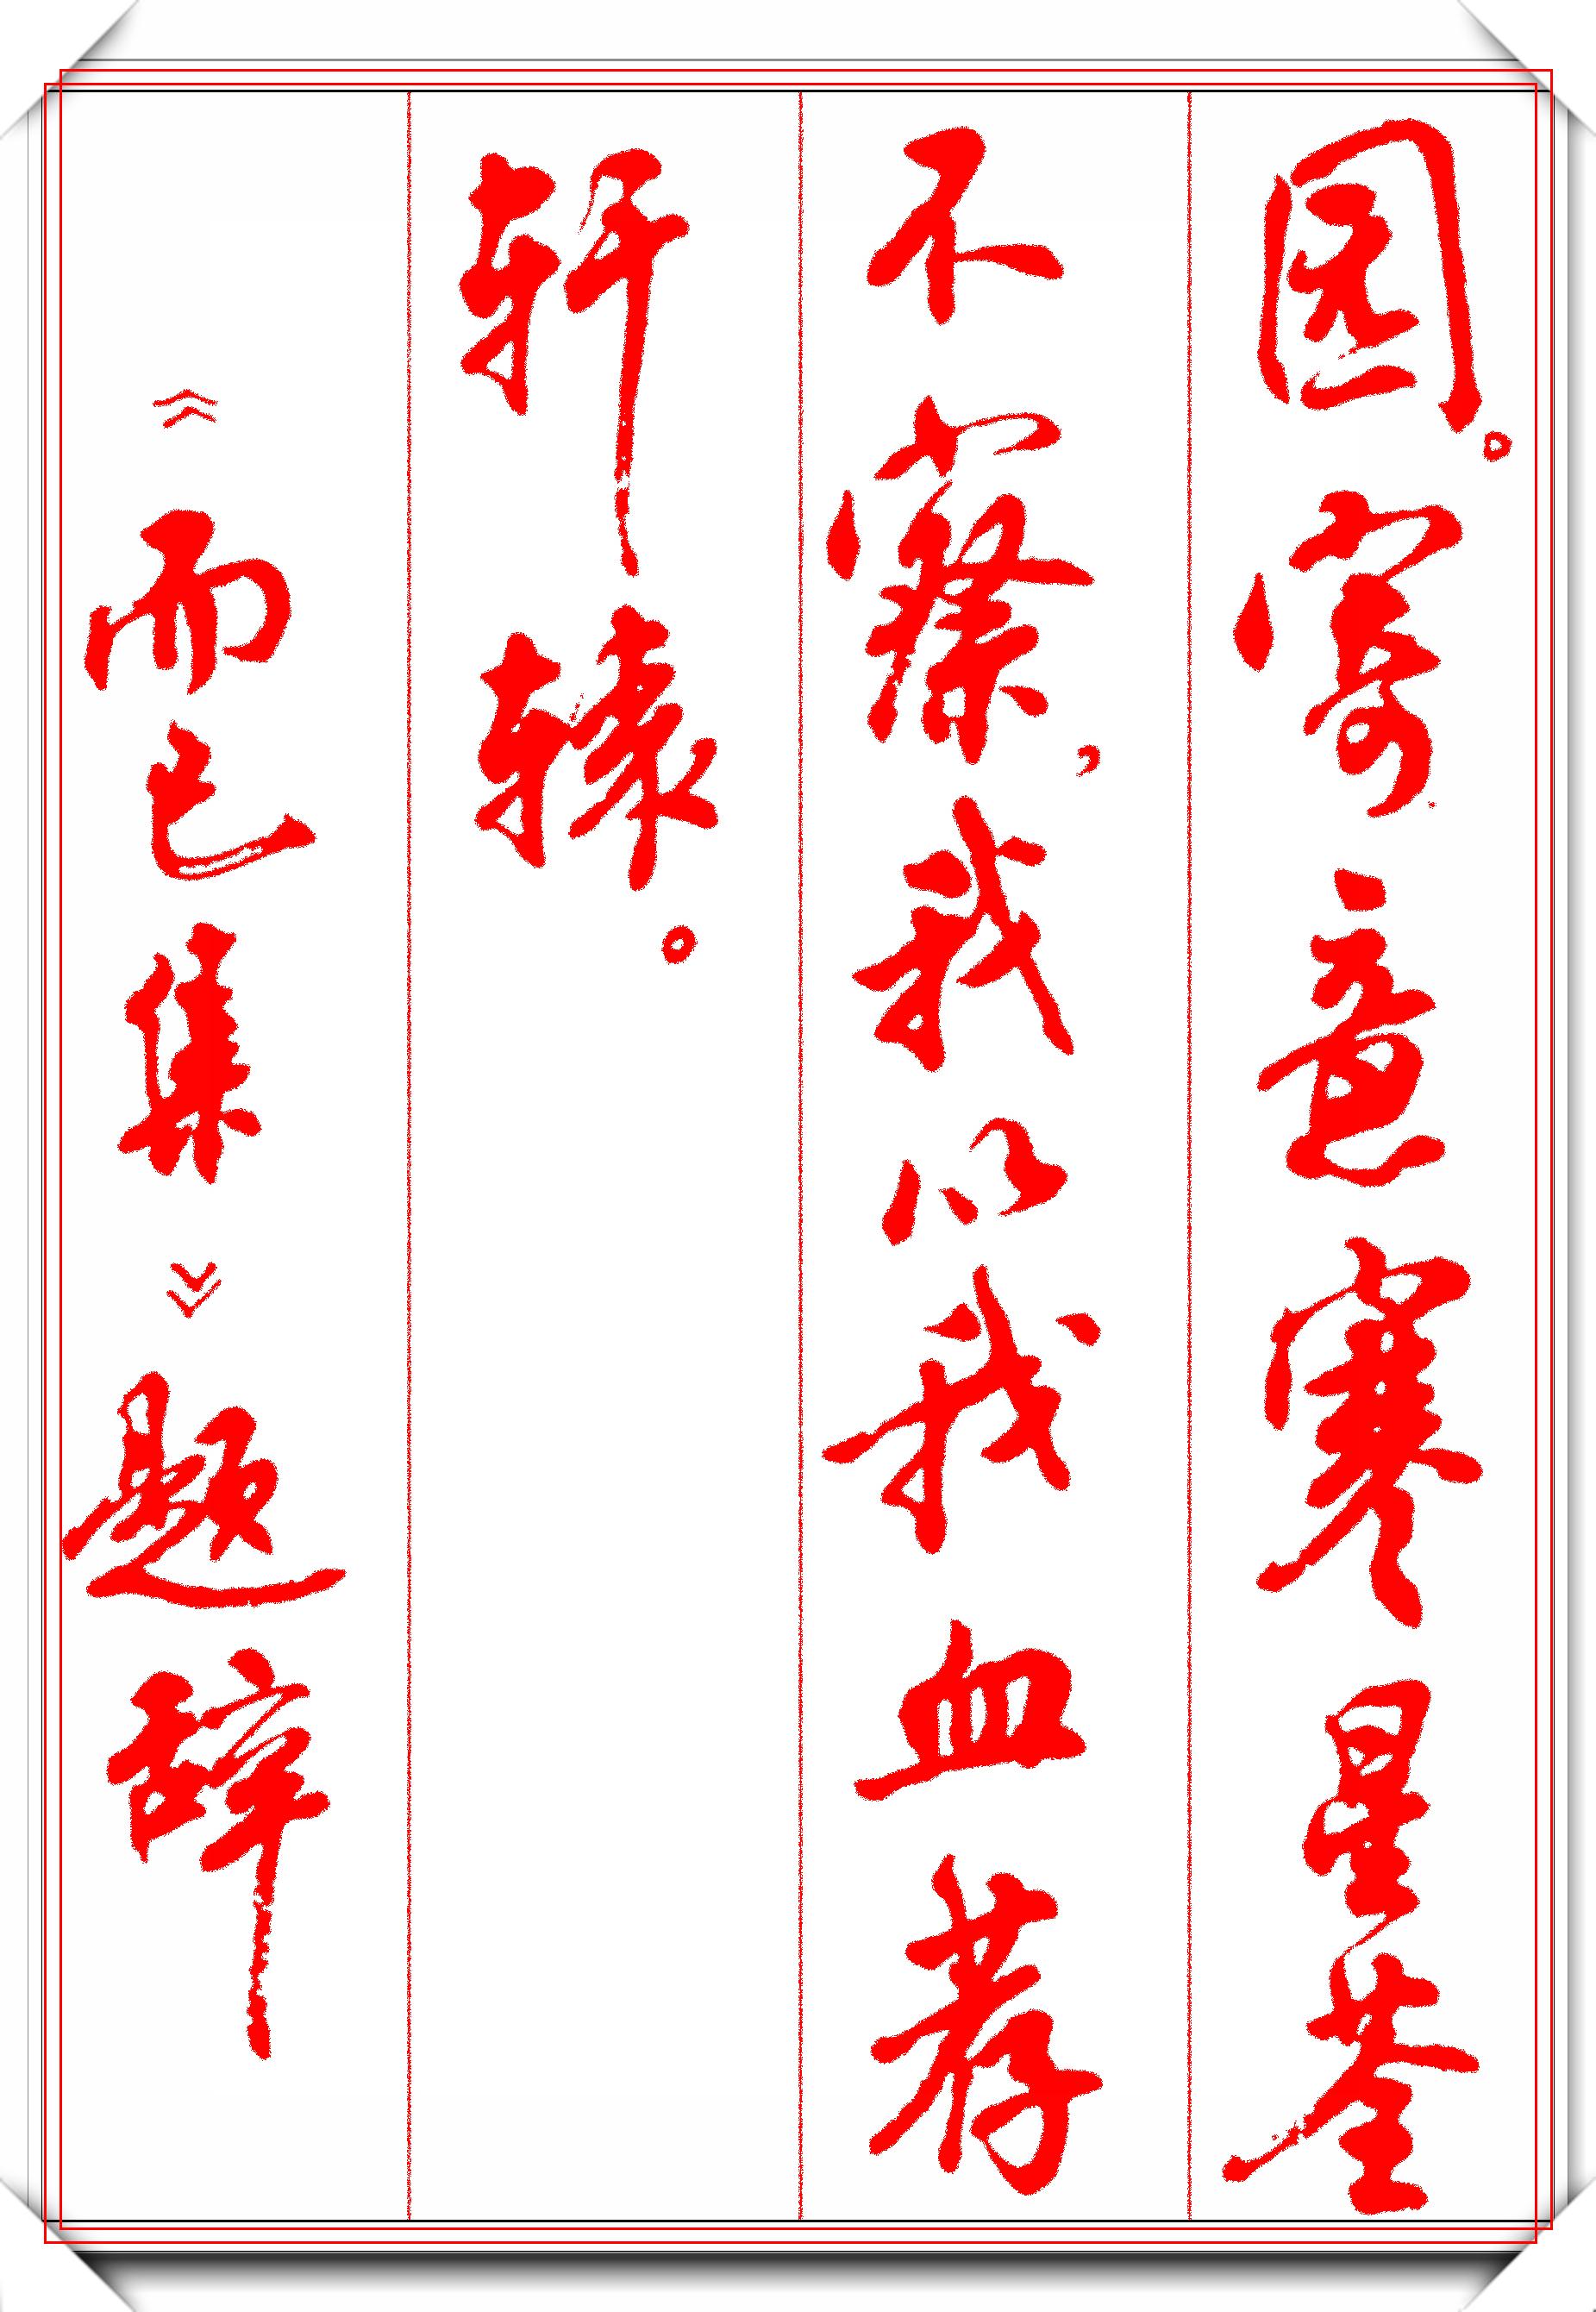 园。寄意寒星荃
不察,我以我血荐
轩辕。
《而已集》题辞